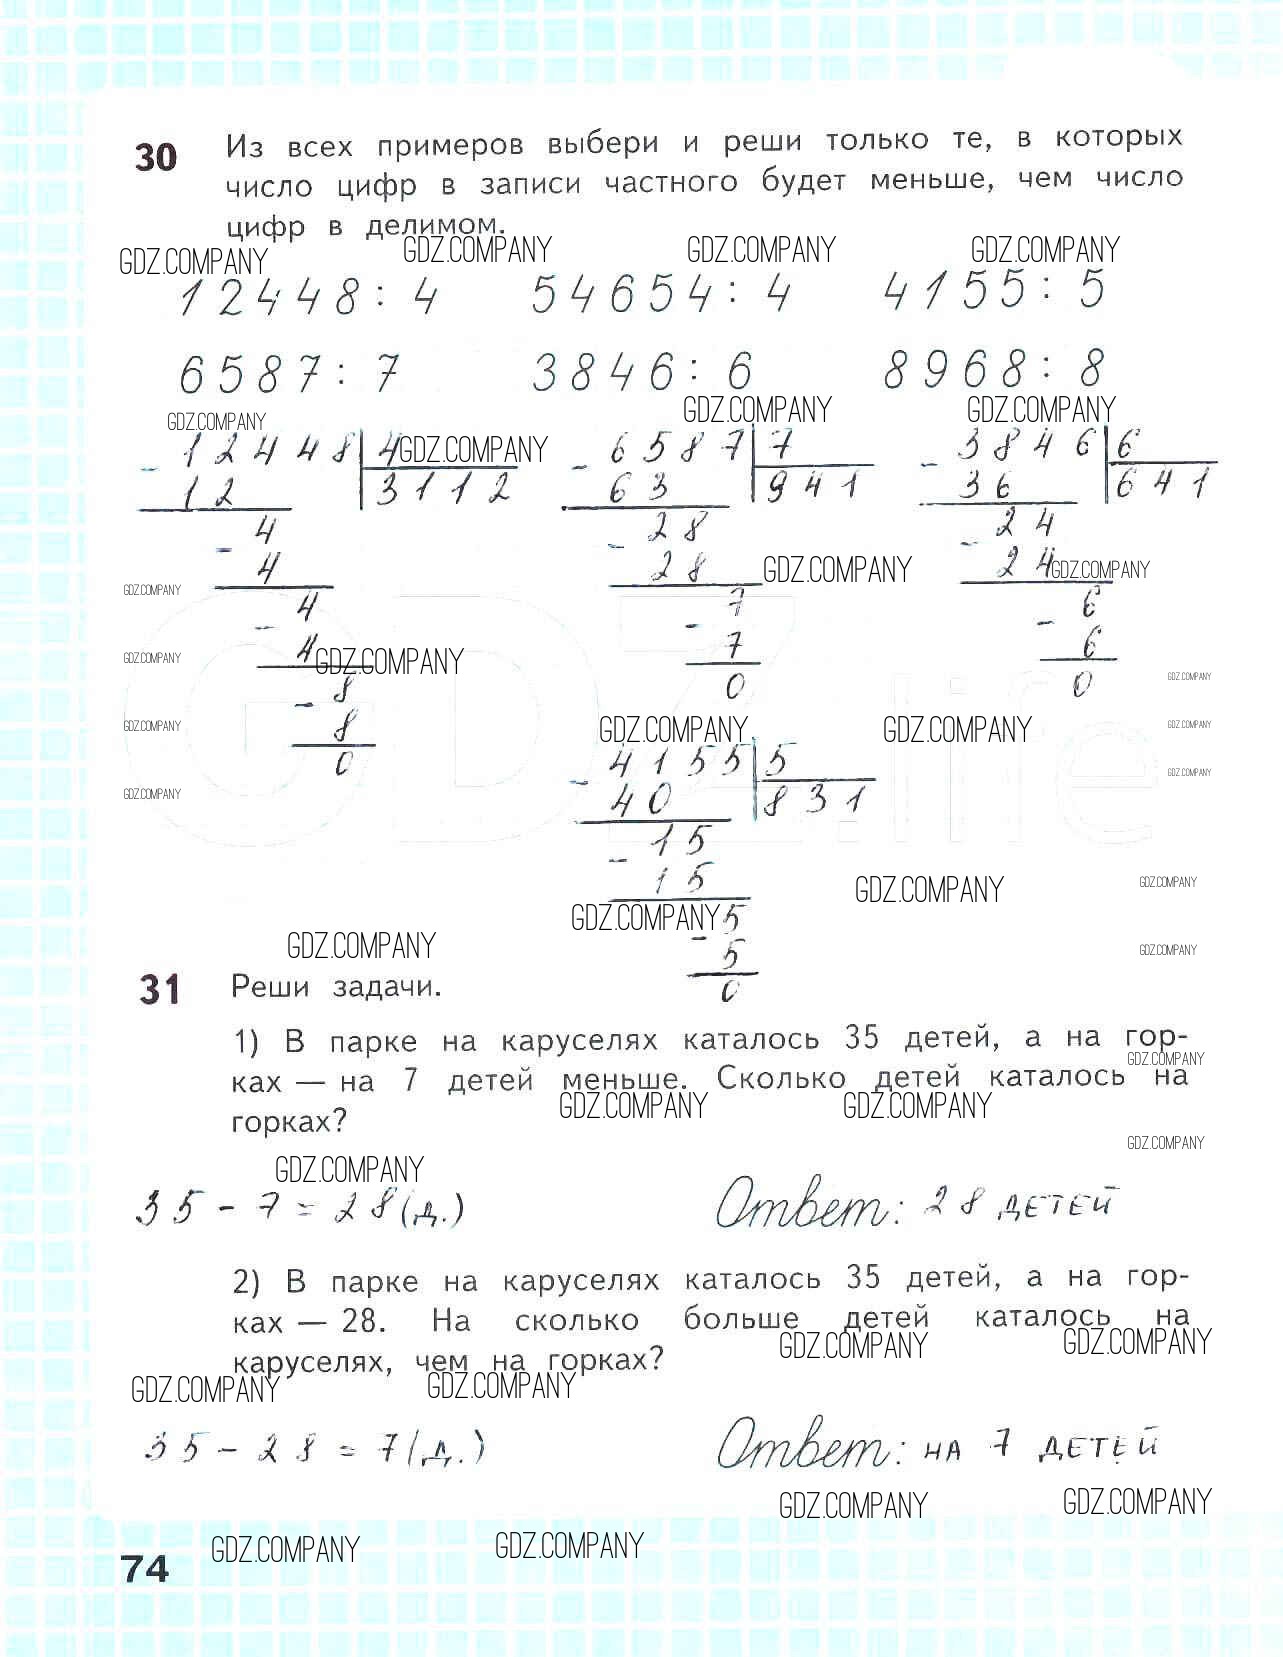 30 Из всех примеров выбери и реши только те, в которых
число цифр в записи частного будет меньше, чем число
цифр в делимом.
GDZ.COMPANY GDZ.COMPANY GDZ.COMPANY GDZ.COMPANY
12448 : 4 54654 : 4 4155 : 5
6587 : 7 3846 : 6 8968 : 8
GDZ.COMPANY GDZ.COMPANY GDZ.COMPANY
- 12448 | 4 GDZ.COMPANY - 6587 | 7 - 3846 | 6
12 3112 63 941 36 641
4 - 28 24
- 4 28 GDZ.COMPANY - 24 GDZ.COMPANY
GDZ.COMPANY 4 7 6
- 4 - 7 - 6
GDZ.COMPANY GDZ.COMPANY
GDZ.life
- 8 0 0 GDZ.COMPANY
GDZ.COMPANY 8 GDZ.COMPANY GDZ.COMPANY GDZ.COMPANY
0 - 4155 | 5 GDZ.COMPANY
GDZ.COMPANY 40 831
15
- 15 GDZ.COMPANY GDZ.COMPANY
GDZ.COMPANY 5
GDZ.COMPANY - 5 GDZ.COMPANY
0
31 Реши задачи.
1) В парке на каруселях каталось 35 детей, а на гор-
GDZ.COMPANY
ках — на 7 детей меньше. Сколько детей каталось на
GDZ.COMPANY GDZ.COMPANY
горках?
GDZ.COMPANY
GDZ.COMPANY
35 - 7 = 28 (д.) Ответ: 28 детей
2) В парке на каруселях каталось 35 детей, а на гор-
ках — 28. На сколько больше детей каталось на
GDZ.COMPANY GDZ.COMPANY
каруселях, чем на горках?
GDZ.COMPANY GDZ.COMPANY
35 - 28 = 7 (д.) Ответ: на 7 детей
GDZ.COMPANY GDZ.COMPANY
GDZ.COMPANY GDZ.COMPANY
74